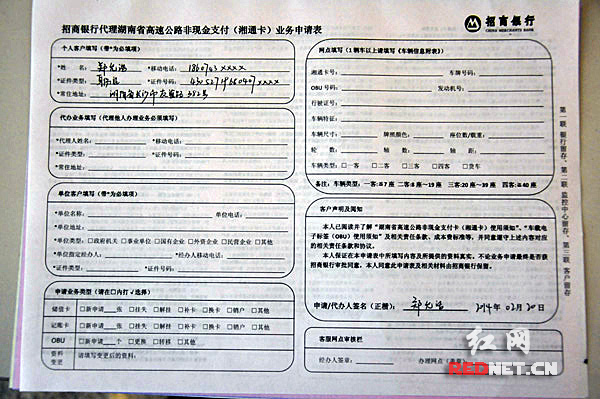 招商银行代理湖南省高速公路非现金支付（湘通卡）业务申请表
招商银行
CHINA MERCHANTS BANK
个人客户填写（带*为必填项）
*姓 名： *移动电话：186 0743 XXXX
*证件类型： *证件号码：
*常住地址：
代办业务填写（代理他人办理业务必须填写）
*代理人姓名： *移动电话：
*证件类型： *证件号码：
*常住地址：
单位客户填写（带*为必填项）
*单位名称： 单位电话：
*单位地址：
*单位类型：□政府机关 □事业单位 □国有企业 □外资企业 □民营企业 □其他
*单位指定经办人： *经办人移动电话：
*证件类型： *证件号码：
申请业务类型（请在□内打√选择）
储值卡 □新申请 张 □挂失 □解挂 □补卡 □换卡 □销户 □其他
记账卡 □新申请 张 □挂失 □解挂 □补卡 □换卡 □销户 □其他
OBU □新申请 个 □更换 □转移 □其他
资料变更 请填写变更后的资料：
网点填写（1辆车以上请填写《车辆信息附表》）
湘通卡号： 车牌号码：
OBU号码： 发动机号：
行驶证号：
车辆特征：
车辆尺寸： 牌照颜色： 座位数/载重：
轮 数： 轴 数： 轴 距：
车辆类型：□一客 □二客 □三客 □四客 □货车
备注：车辆类型 一客:≤7座 二客:8～19座 三客:20～39座 四客:≥40座
客户声明及阅知
本人已阅读并了解“湖南省高速公路非现金支付卡（湘通卡）使用须知”、“车载电
子标签（OBU）使用须知”及相关责任条款、成本费标准等，并同意遵守上述内容对应
的相关责任条款。
本人保证在本申请表中所填写内容及所提供的资料真实。不论业务申请最终是否获
招商银行审批同意，本人同意此申请表及相关材料由招商银行保留。
申请/代办人签名（正楷）： 2014年02月20日
客服网点审核栏
经办人签章： 办理网点（盖章）：
第一联 银行留存、第二联 监控中心留存、第三联 客户留存
红网
REDNET.CN